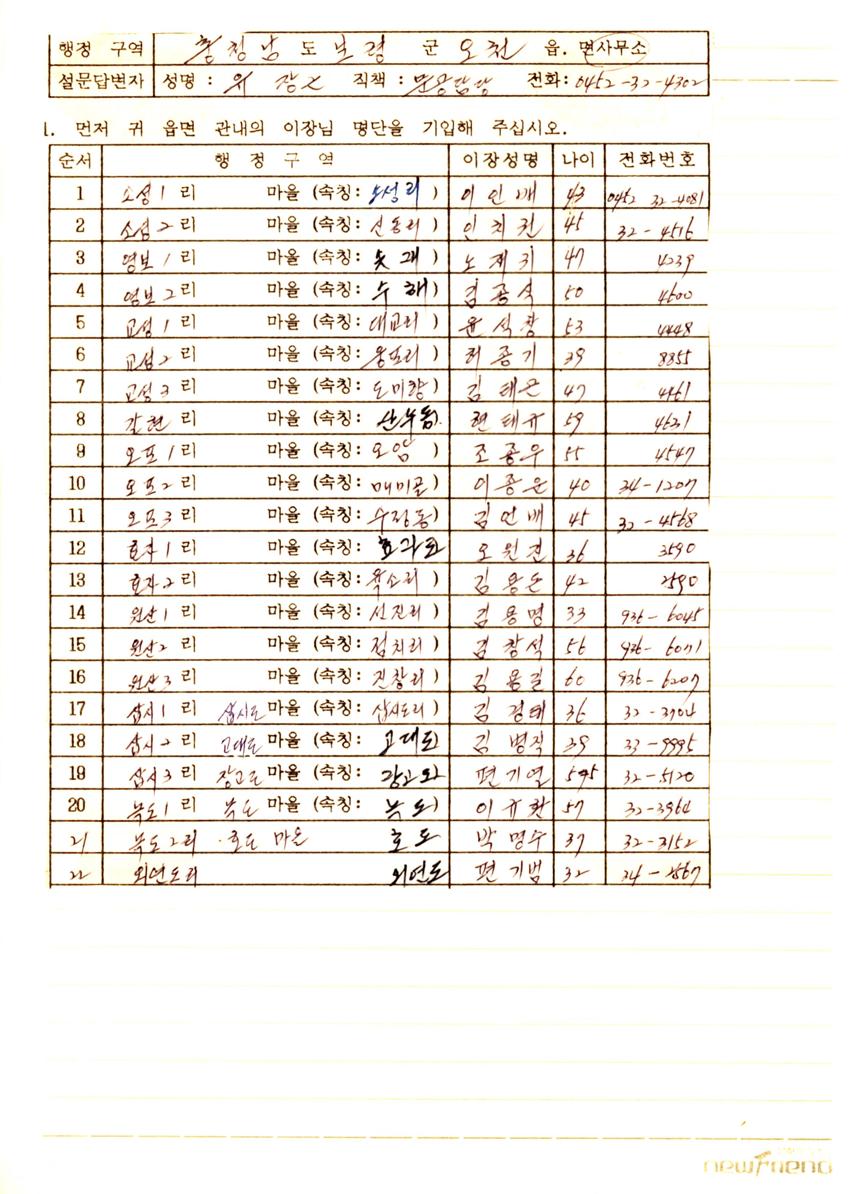 행정 구역 충청남 도 보령 군 오천 읍. 면사무소
설문답변자 성명 : 직책 : 전화: 0452-32-4302
1. 먼저 귀 읍면 관내의 이장님 명단을 기입해 주십시오.
순서 행 정 구 역 이장성명 나이 전화번호
1 소성 1 리 마을 (속칭: ) 이 인 배 43 0452 32-4081
2 소성 2 리 마을 (속칭: 신동리 ) 인 치 권 45 32-4516
3 영보 1 리 마을 (속칭: ) 노 재 47 4239
4 영보 2 리 마을 (속칭: 수 해) 김 종 석 50 4600
5 교성 1 리 마을 (속칭: 대교리 ) 윤 석 창 53 4448
6 교성 2 리 마을 (속칭: ) 허 종 기 39 8855
7 교성 3 리 마을 (속칭: 도미항 ) 김 태 은 47 4461
8 갈현 리 마을 (속칭: 산수동 현 태 규 59 4631
9 오포 1 리 마을 (속칭: 오암 ) 조 종 우 55 4547
10 오포 2 리 마을 (속칭: 매미골 ) 이 종 운 40 34-1207
11 오포 3 리 마을 (속칭: ) 김 언 배 45 32-4568
12 효자 1 리 마을 (속칭: 오 원 진 36 3590
13 효자 2 리 마을 (속칭: 육소리 ) 김 용 운 42 2590
14 원산 1 리 마을 (속칭: 선진리 ) 김 용 명 33 936-6045
15 원산 2 리 마을 (속칭: 점치리 ) 김 창 식 56 936-6071
16 원산 3 리 마을 (속칭: 진창리 ) 김 용 길 60 936-6207
17 삽시 1 리 삽시도 마을 (속칭: 삽시도리 ) 김 경 태 36 32-3704
18 삽시 2 리 고대도 마을 (속칭: 고대도 김 병 직 39 33-9995
19 삽시 3 리 장고도 마을 (속칭: 편 기 열 32-5120
20 녹도 1 리 녹도 마을 (속칭: 녹도) 이 규 57 32-3964
21 녹도 2 리 호도 마을 호도 박 명 수 37 32-3152
22 외연도리 외연도 편 기 범 32 34-2567
newFriend